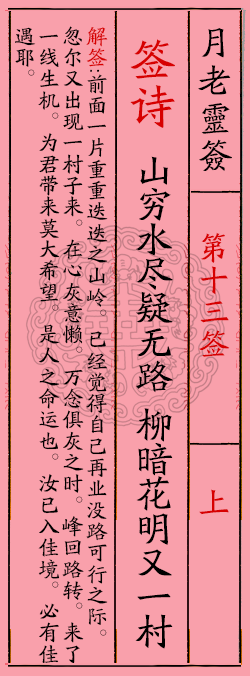 月老靈簽
第十三签
上
签诗
山穷水尽疑无路 柳暗花明又一村
解签:前面一片重重迭迭之山岭。已经觉得自己再业没路可行之际。
忽尔又出现一村子来。在心灰意懒。万念俱灰之时。峰回路转。来了
一线生机。为君带来莫大希望。是人之命运也。汝已入佳境。必有佳
遇耶。